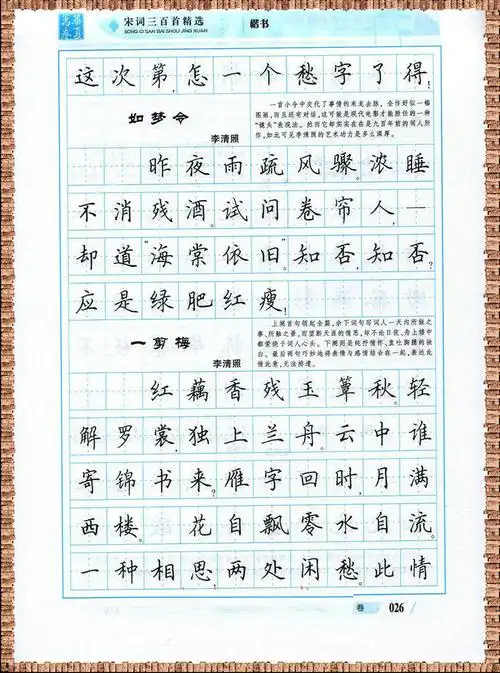 华夏
万卷
宋词三百首精选
SONG CI SAN BAI SHOU JING XUAN
楷书
这次第,怎一个愁字了得!
如梦令
李清照
一首小令中交代了事情的来龙去脉,全作好似一幅
图画,而且还有对话,这可能是现代电影才能胜任的一种
“镜头”表现法。然而它却实实在在是九百年前的词人所
作,如此可见李清照的艺术功力是多么深厚。
昨夜雨疏风骤。浓睡
不消残酒。试问卷帘人,—
却道“海棠依旧”。知否,知否?
应是绿肥红瘦!
一剪梅
李清照
上阕首句领起全篇,余下词句写词人一天内所做之
事、所触之景,而望断天涯的情思,却不论日夜、舟上楼中
都萦绕于词人心头。下阕则是纯抒情怀、直吐胸臆的独
白。最后两句巧妙地将表情与感情结合在一起,表达此
情此意,无法排遣。
红藕香残玉簟秋。轻
解罗裳,独上兰舟。云中谁
寄锦书来?雁字回时,月满
西楼。 花自飘零水自流。
一种相思,两处闲愁。此情
卷 026